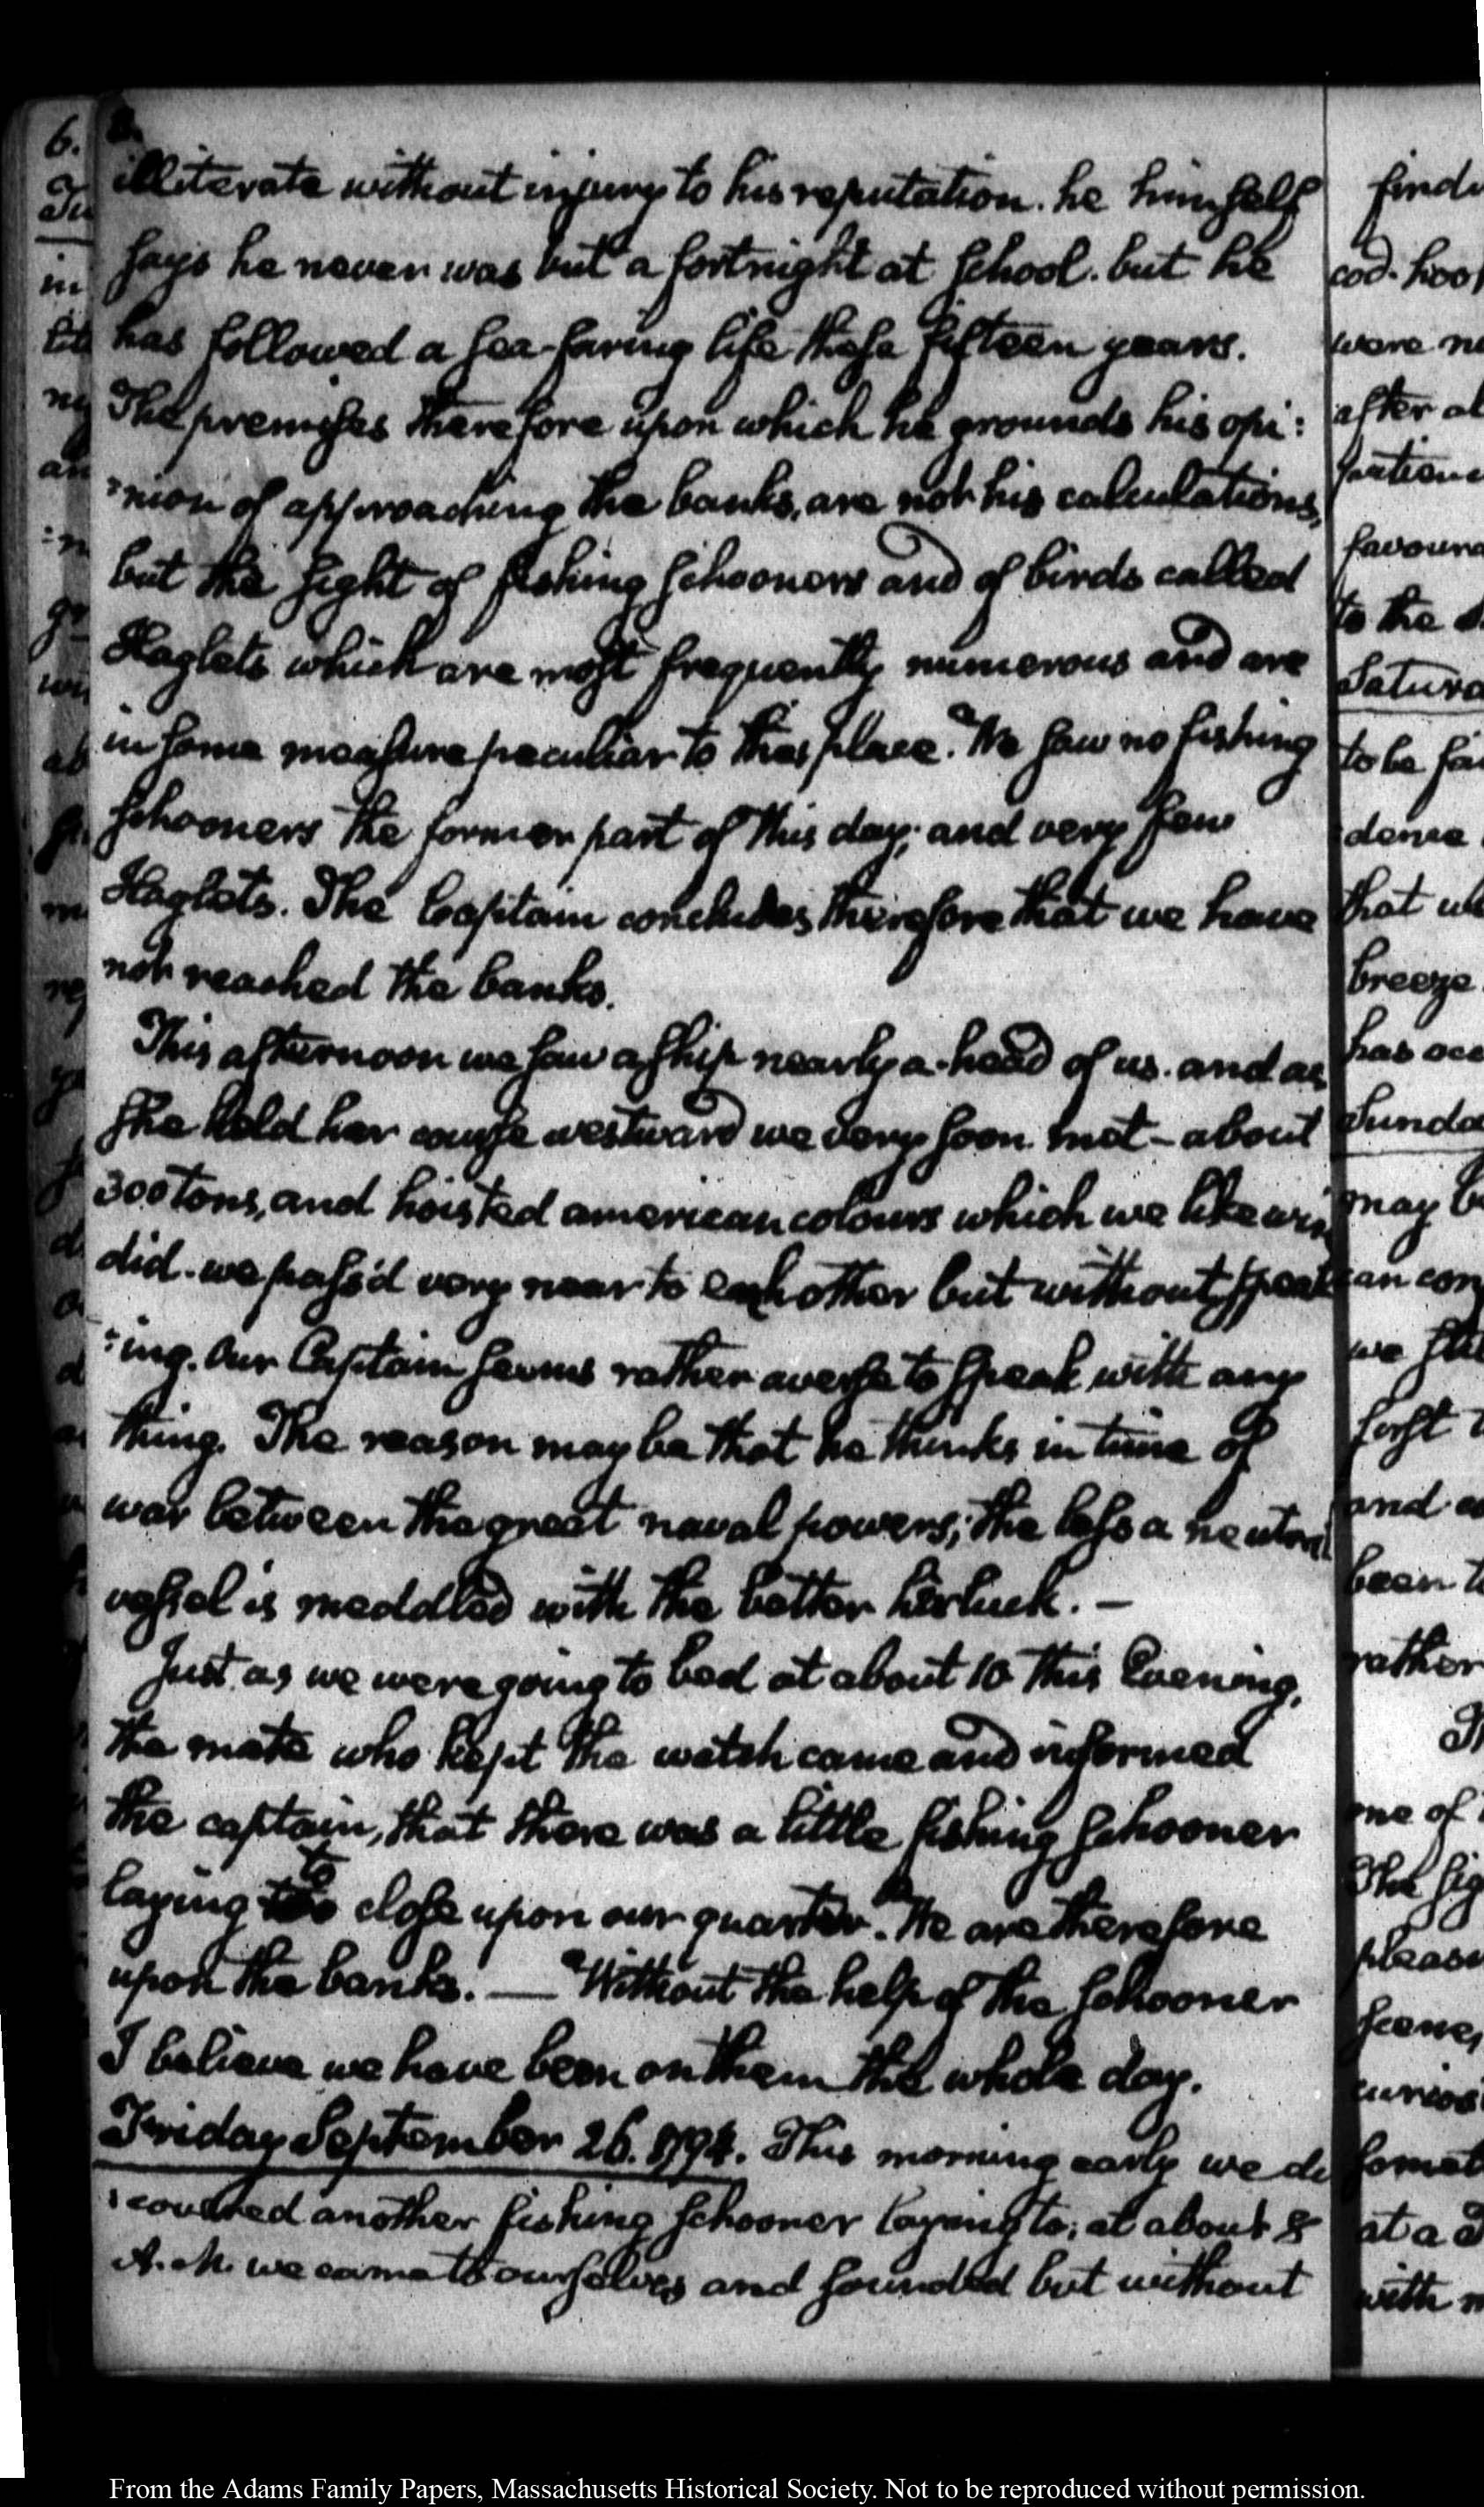 8.
illiterate without injury to his reputation. he himself
says he never was but a fortnight at school. but he
has followed a sea-faring life these fifteen years.
The premises therefore upon which he grounds his opi:
:nion of approaching the banks, are not his calculations,
but the sight of fishing schooners and of birds called
Haglets which are most frequently numerous and are
in some measure peculiar to this place. We saw no fishing
schooners the former part of this day; and very few
Haglets. The Captain concludes therefore that we have
not reached the banks.
This afternoon we saw a ship nearly a-head of us. and as
she held her course westward we very soon met - about
300 tons, and hoisted american colours which we likewise
did. we pass'd very near to each other but without speak
:ing. Our Captain seems rather averse to speak with any
thing. The reason may be that he thinks in time of
war between the great naval powers; the less a neutral
vessel is meddled with the better her luck. —
Just as we were going to bed at about 10 this Evening,
the mate who kept the watch came and informed
the captain, that there was a little fishing schooner
laying to close upon our quarter. We are therefore
upon the banks. — Without the help of the schooner
I believe we have been on them the whole day.
Friday September 26. 1794. This morning early we di
:scovered another fishing schooner laying to; at about 8
A.M. we came to ourselves and sounded but without
From the Adams Family Papers, Massachusetts Historical Society. Not to be reproduced without permission.